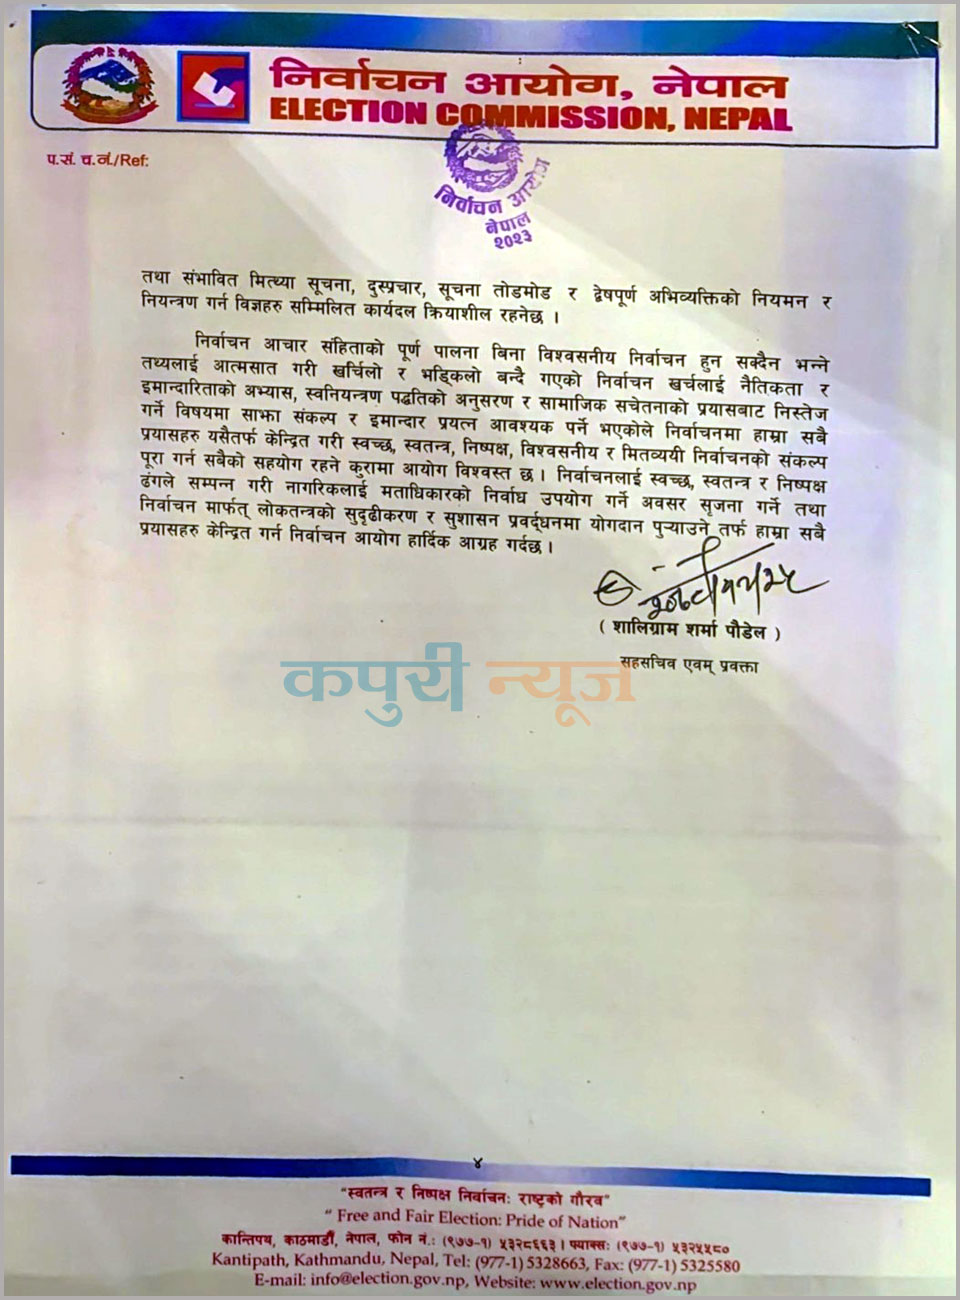 निर्वाचन आयोग, नेपाल
ELECTION COMMISSION, NEPAL
प.सं. च.नं./Ref:
निर्वाचन आयोग
नेपाल
२०२३
तथा संभावित मिथ्या सूचना, दुस्प्रचार, सूचना तोडमोड र द्वेषपूर्ण अभिव्यक्तिको नियमन र
नियन्त्रण गर्न विज्ञहरु सम्मिलित कार्यदल क्रियाशील रहनेछ ।
निर्वाचन आचार संहिताको पूर्ण पालना बिना विश्वसनीय निर्वाचन हुन सक्दैन भन्ने
तथ्यलाई आत्मसात गरी खर्चिलो र भड्किलो बन्दै गएको निर्वाचन खर्चलाई नैतिकता र
इमान्दारिताको अभ्यास, स्वनियन्त्रण पद्धतिको अनुसरण र सामाजिक सचेतनाको प्रयासबाट निस्तेज
गर्ने विषयमा साझा संकल्प र इमान्दार प्रयत्न आवश्यक पर्ने भएकोले निर्वाचनमा हाम्रा सबै
प्रयासहरु यसैतर्फ केन्द्रित गरी स्वच्छ, स्वतन्त्र, निष्पक्ष, विश्वसनीय र मितव्ययी निर्वाचनको संकल्प
पूरा गर्न सबैको सहयोग रहने कुरामा आयोग विश्वस्त छ । निर्वाचनलाई स्वच्छ, स्वतन्त्र र निष्पक्ष
ढंगले सम्पन्न गरी नागरिकलाई मताधिकारको निर्वाध उपयोग गर्ने अवसर सृजना गर्ने तथा
निर्वाचन मार्फत् लोकतन्त्रको सुदृढीकरण र सुशासन प्रवर्द्धनमा योगदान पुऱ्याउने तर्फ हाम्रा सबै
प्रयासहरु केन्द्रित गर्न निर्वाचन आयोग हार्दिक आग्रह गर्दछ ।
( शालिग्राम शर्मा पौडेल )
सहसचिव एवम् प्रवक्ता
कपुरी न्यूज
४
"स्वतन्त्र र निष्पक्ष निर्वाचन: राष्ट्रको गौरव"
" Free and Fair Election: Pride of Nation"
कान्तिपथ, काठमाडौं, नेपाल, फोन नं.: (९७७-१) ५३२८६६३ । फ्याक्स: (९७७-१) ५३२५५८०
Kantipath, Kathmandu, Nepal, Tel: (977-1) 5328663, Fax: (977-1) 5325580
E-mail: info@election.gov.np, Website: www.election.gov.np